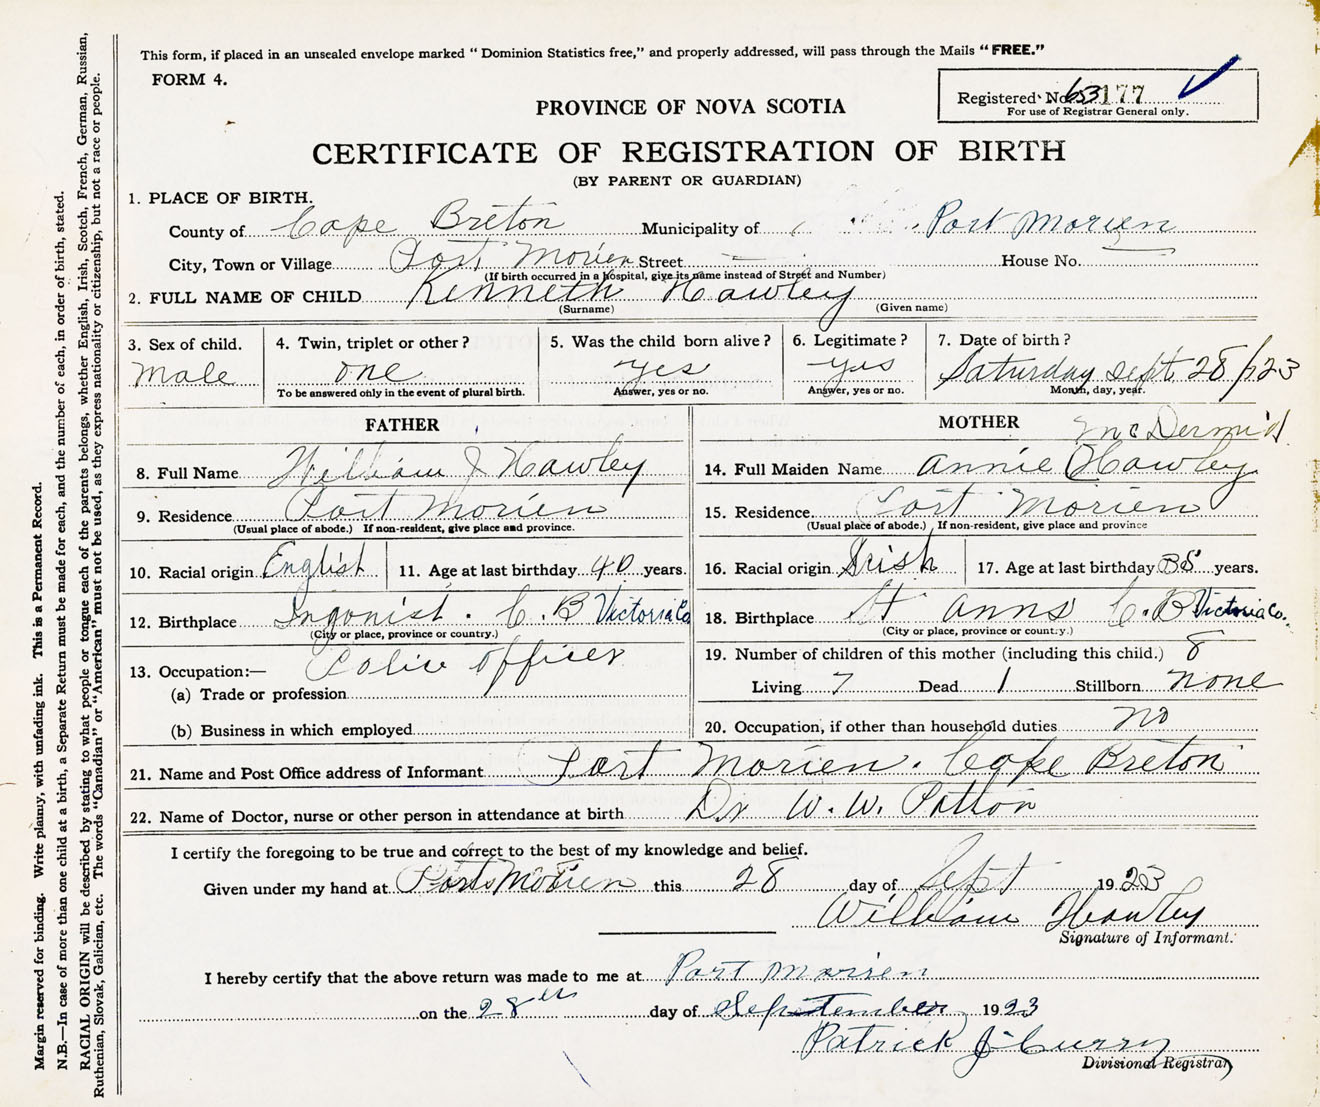 This form, if placed in an unsealed envelope marked “ Dominion Statistics free,” and properly addressed, will pass through the Mails “ FREE.”
FORM 4.
Registered No. 177
For use of Registrar General only.
PROVINCE OF NOVA SCOTIA
CERTIFICATE OF REGISTRATION OF BIRTH
(BY PARENT OR GUARDIAN)
1. PLACE OF BIRTH.
County of Cape Breton Municipality of Port Morien
City, Town or Village Port Morien Street — House No. —
(If birth occurred in a hospital, give its name instead of Street and Number)
2. FULL NAME OF CHILD Kenneth Hawley
(Surname) (Given name)
3. Sex of child. 4. Twin, triplet or other ? 5. Was the child born alive ? 6. Legitimate ? 7. Date of birth ?
Male one yes yes Saturday Sept 28/23
To be answered only in the event of plural birth. Answer, yes or no. Answer, yes or no. Month, day, year.
FATHER
8. Full Name William J Hawley
9. Residence Port Morien
(Usual place of abode.) If non-resident, give place and province.
10. Racial origin English 11. Age at last birthday 40 years.
12. Birthplace Ingonist. C. B Victoria Co
(City or place, province or country.)
13. Occupation:— Police officer
(a) Trade or profession
(b) Business in which employed
MOTHER
McDermid
14. Full Maiden Name Annie Hawley
15. Residence Port Morien
(Usual place of abode.) If non-resident, give place and province
16. Racial origin Irish 17. Age at last birthday 38 years.
18. Birthplace St Anns C. B Victoria Co.
(City or place, province or country.)
19. Number of children of this mother (including this child.) 8
Living 7 Dead 1 Stillborn none
20. Occupation, if other than household duties no
21. Name and Post Office address of Informant Port Morien. Cape Breton
22. Name of Doctor, nurse or other person in attendance at birth Dr W. W. Patton
I certify the foregoing to be true and correct to the best of my knowledge and belief.
Given under my hand at Port Morien this 28 day of Sept 1923
William Hawley
Signature of Informant.
I hereby certify that the above return was made to me at Port Morien
on the 28th day of September 1923
Patrick J Curry
Divisional Registrar
Margin reserved for binding. Write plainly, with unfading ink. This is a Permanent Record.
N.B.—In case of more than one child at a birth, a Separate Return must be made for each, and the number of each, in order of birth, stated.
RACIAL ORIGIN will be described by stating to what people or tongue each of the parents belongs, whether English, Irish, Scotch, French, German, Russian,
Ruthenian, Slovak, Galician, etc. The words “Canadian” or “American” must not be used, as they express nationality or citizenship, but not a race or people.